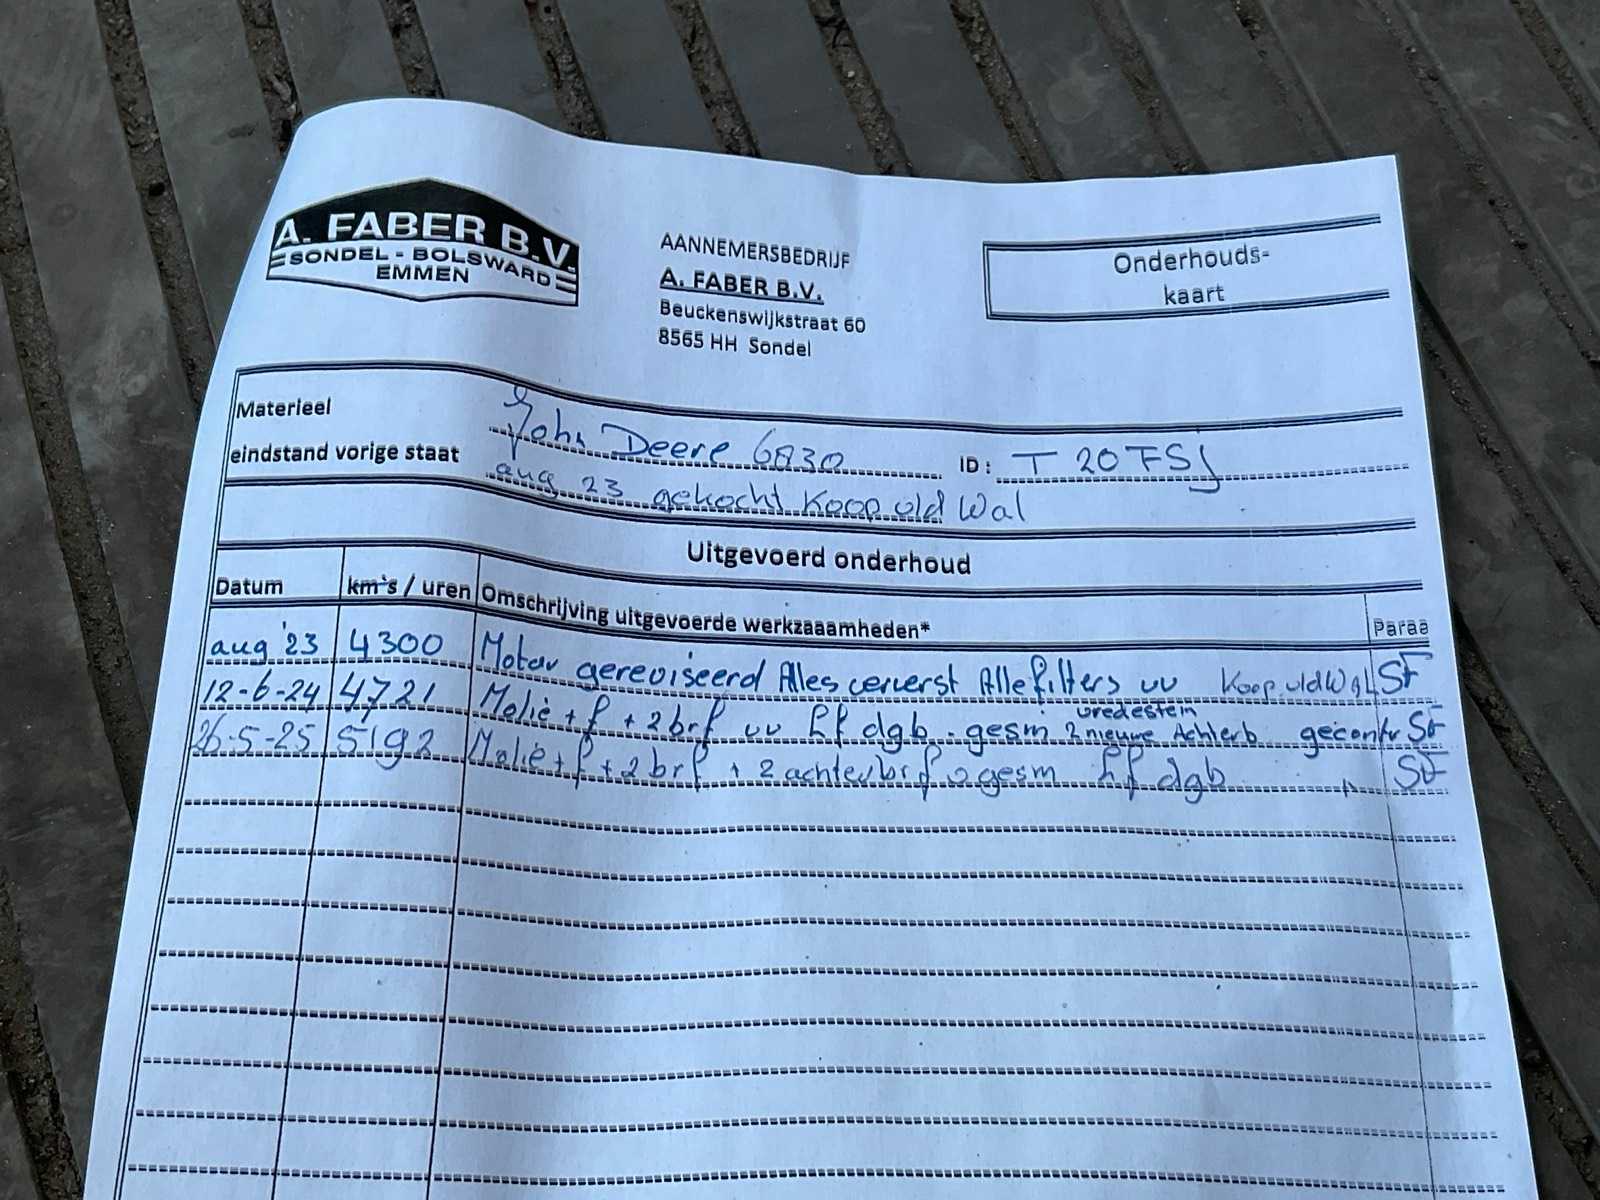 A. FABER B.V.
SONDEL - BOLSWARD
EMMEN
AANNEMERSBEDRIJF
A. FABER B.V.
Beuckenswijkstraat 60
8565 HH Sondel
Onderhouds-
kaart
Materieel John Deere 6830 ID: T 20 FSJ
eindstand vorige staat aug 23 gekocht Koop oudwal
Uitgevoerd onderhoud
Datum km's / uren Omschrijving uitgevoerde werkzaaamheden* Paraa
aug '23 4300 Motor gereviseerd Alles ververst Alle filters vv Koop SF
vredestein
12-6-24 4721 Molie + f + 2 brf vv Lf dgb. gesm 2 nieuwe Achterb gecontr SF
26-5-25 5192 Molie + f + 2 brf + 2 achter brf gesm Lf dgb SF